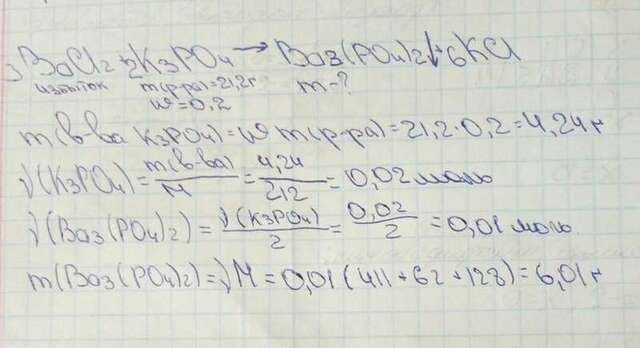 3BaCl2+2K3PO4→Ba3(PO4)2↓+6KCl
избыток m(р-ра)=21,2г m-?
w=0,2
m(в-ва K3PO4)=w m(р-ра)=21,2·0,2=4,24г
ν(K3PO4)=m(в-ва)/M=4,24/212=0,02моль
ν(Ba3(PO4)2)=ν(K3PO4)/2=0,02/2=0,01моль.
m(Ba3(PO4)2)=νM=0,01(411+62+128)=6,01г